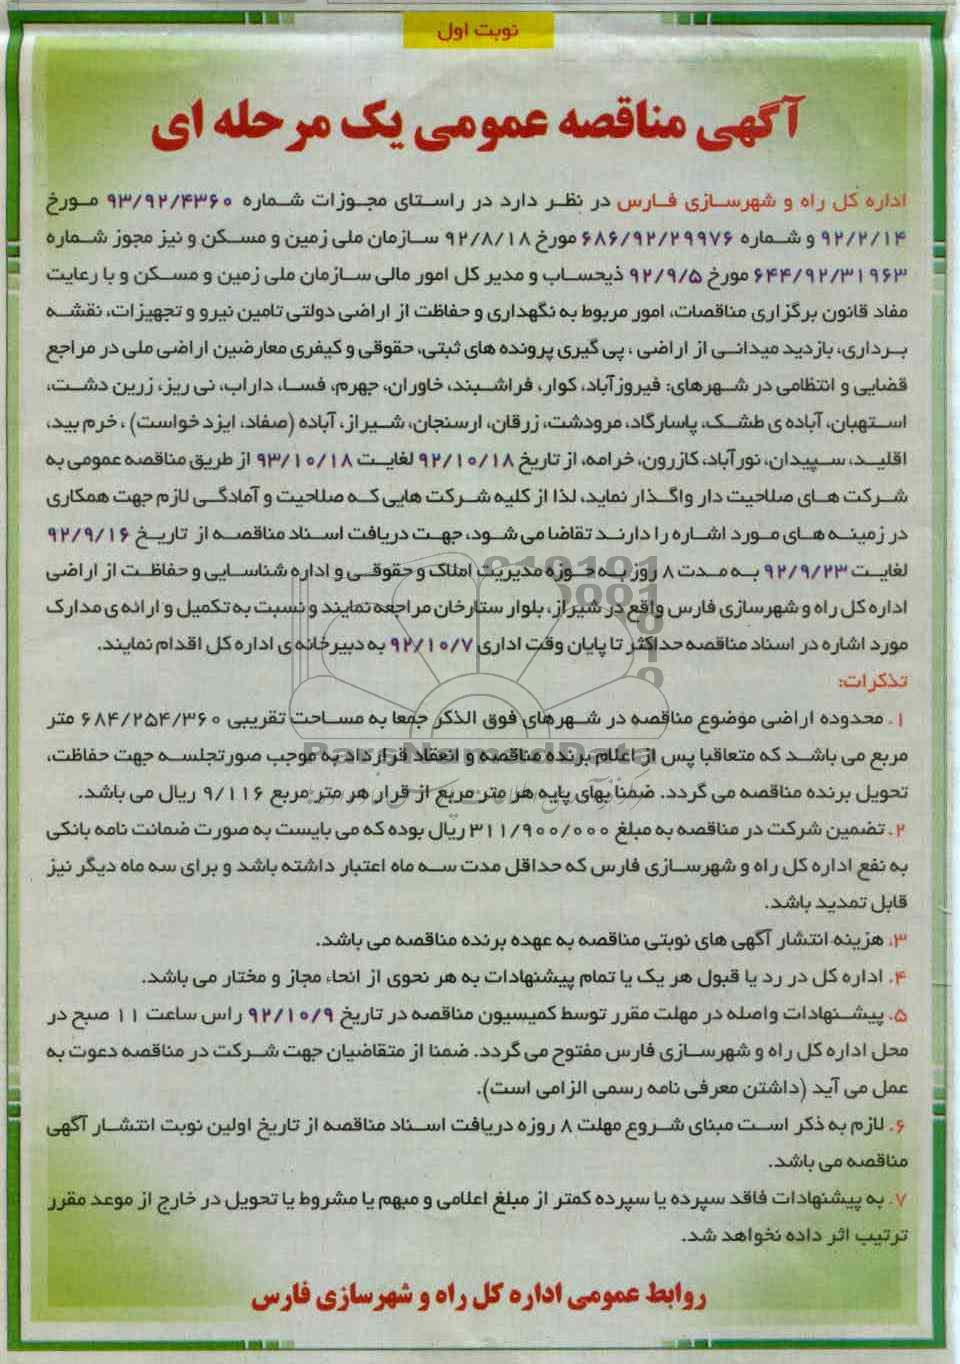 نوبت اول
آگهی مناقصه عمومی یک مرحله ای
اداره کل راه و شهرسازی فارس در نظر دارد در راستای مجوزات شماره ۹۳/۹۲/۴۳۶۰ مورخ
۹۲/۲/۱۴ و شماره ۶۸۶/۹۲/۲۹۹۷۶ مورخ ۹۲/۸/۱۸ سازمان ملی زمین و مسکن و نیز مجوز شماره
۶۴۴/۹۲/۳۱۹۶۳ مورخ ۹۲/۹/۵ ذیحساب و مدیر کل امور مالی سازمان ملی زمین و مسکن و با رعایت
مفاد قانون برگزاری مناقصات، امور مربوط به نگهداری و حفاظت از اراضی دولتی تامین نیرو و تجهیزات، نقشه
برداری، بازدید میدانی از اراضی ، پی گیری پرونده های ثبتی، حقوقی و کیفری معارضین اراضی ملی در مراجع
قضایی و انتظامی در شهرهای: فیروزآباد، کوار، فراشبند، خاوران، جهرم، فسا، داراب، نی ریز، زرین دشت،
استهبان، آباده ی طشک، پاسارگاد، مرودشت، زرقان، ارسنجان، شیراز، آباده (صفاد، ایزد خواست) ، خرم بید،
اقلید، سپیدان، نورآباد، کازرون، خرامه، از تاریخ ۹۲/۱۰/۱۸ لغایت ۹۳/۱۰/۱۸ از طریق مناقصه عمومی به
شرکت های صلاحیت دار واگذار نماید، لذا از کلیه شرکت هایی که صلاحیت و آمادگی لازم جهت همکاری
در زمینه های مورد اشاره را دارند تقاضا می شود، جهت دریافت اسناد مناقصه از تاریخ ۹۲/۹/۱۶
لغایت ۹۲/۹/۲۳ به مدت ۸ روز به حوزه مدیریت املاک و حقوقی و اداره شناسایی و حفاظت از اراضی
اداره کل راه و شهرسازی فارس واقع در شیراز، بلوار ستارخان مراجعه نمایند و نسبت به تکمیل و ارائه ی مدارک
مورد اشاره در اسناد مناقصه حداکثر تا پایان وقت اداری ۹۲/۱۰/۷ به دبیرخانه ی اداره کل اقدام نمایند.
تذکرات:
۱. محدوده اراضی موضوع مناقصه در شهرهای فوق الذکر جمعا به مساحت تقریبی ۶۸۴/۲۵۴/۳۶۰ متر
مربع می باشد که متعاقبا پس از اعلام برنده مناقصه و انعقاد قرارداد به موجب صورتجلسه جهت حفاظت،
تحویل برنده مناقصه می گردد. ضمنا بهای پایه هر متر مربع از قرار هر متر مربع ۹/۱۱۶ ریال می باشد.
۲. تضمین شرکت در مناقصه به مبلغ ۳۱۱/۹۰۰/۰۰۰ ریال بوده که می بایست به صورت ضمانت نامه بانکی
به نفع اداره کل راه و شهرسازی فارس که حداقل مدت سه ماه اعتبار داشته باشد و برای سه ماه دیگر نیز
قابل تمدید باشد.
۳. هزینه انتشار آگهی های نوبتی مناقصه به عهده برنده مناقصه می باشد.
۴. اداره کل در رد یا قبول هر یک یا تمام پیشنهادات به هر نحوی از انحاء مجاز و مختار می باشد.
۵. پیشنهادات واصله در مهلت مقرر توسط کمیسیون مناقصه در تاریخ ۹۲/۱۰/۹ راس ساعت ۱۱ صبح در
محل اداره کل راه و شهرسازی فارس مفتوح می گردد. ضمنا از متقاضیان جهت شرکت در مناقصه دعوت به
عمل می آید (داشتن معرفی نامه رسمی الزامی است).
۶. لازم به ذکر است مبنای شروع مهلت ۸ روزه دریافت اسناد مناقصه از تاریخ اولین نوبت انتشار آگهی
مناقصه می باشد.
۷. به پیشنهادات فاقد سپرده یا سپرده کمتر از مبلغ اعلامی و مبهم یا مشروط یا تحویل در خارج از موعد مقرر
ترتیب اثر داده نخواهد شد.
روابط عمومی اداره کل راه و شهرسازی فارس